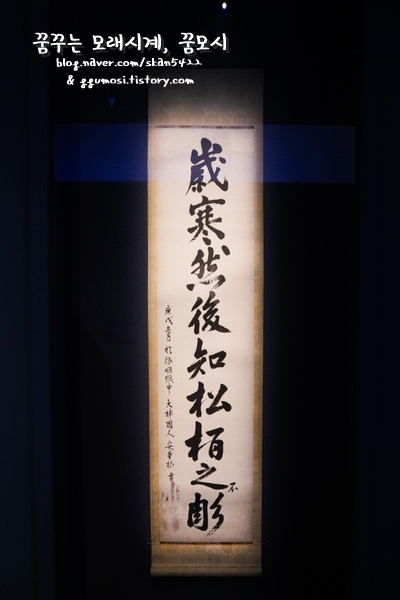 꿈꾸는 모래시계, 꿈모시
blog.naver.com/skan5422
& ggumosi.tistory.com
歲寒然後知松栢之不彫
庚戌三月 於旅順獄中 大韓國人 安重根 書